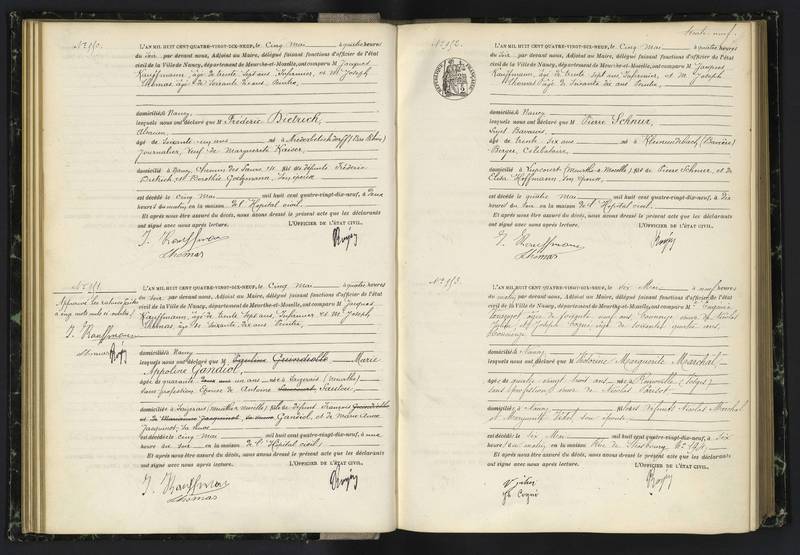 N° 950.
L'AN MIL HUIT CENT QUATRE-VINGT-DIX-NEUF, le cinq Mai à quatre heures
du soir par devant nous, Adjoint au Maire, délégué faisant fonctions d'officier de l'état
civil de la Ville de Nancy, département de Meurthe-et-Moselle, ont comparu M Jacques
Kauffmann, âgé de trente sept ans, Infirmier, et M. Joseph
Thomas âgé de soixante dix ans,
domicilié à Nancy
lesquels nous ont déclaré que M Frédéric Dietrich,
Alsacien,
âgé de soixante ans né à (Bas Rhin)
journalier, veuf de Marguerite Kaiser
domicilié à Nancy, fils des défunts Frédéric
Dietrich et Dorothée son épouse
est décédé le cinq mai mil huit cent quatre-vingt-dix-neuf, à deux
heures du matin en la maison de l'Hôpital civil.
Et après nous être assuré du décès, nous avons dressé le présent acte que les déclarants
ont signé avec nous après lecture. L'OFFICIER DE L'ÉTAT CIVIL,
J. Kauffmann
Thomas
N° 951.
Approuvé les ratures
J. Kauffmann
Thomas
L'AN MIL HUIT CENT QUATRE-VINGT-DIX-NEUF, le cinq Mai à quatre heures
du soir par devant nous, Adjoint au Maire, délégué faisant fonctions d'officier de l'état
civil de la Ville de Nancy, département de Meurthe-et-Moselle, ont comparu M Jacques
Kauffmann âgé de trente sept ans, Infirmier, et M. Joseph
Thomas âgé de soixante dix ans
domiciliés à Nancy
lesquels nous ont déclaré que M Marie
Appoline Gandiol,
âgée de quarante un ans née à (Meurthe)
sans profession, Epouse de Antoine
domiciliée à (Meurthe & Moselle) fille de défunt François
Gandiol, et de Marie Anne
Jacquinot, sa veuve
est décédée le cinq mai mil huit cent quatre-vingt-dix-neuf, à une
heure du soir en la maison de l'Hôpital civil
Et après nous être assuré du décès, nous avons dressé le présent acte que les déclarants
ont signé avec nous après lecture. L'OFFICIER DE L'ÉTAT CIVIL,
J. Kauffmann
Thomas
N° 952.
L'AN MIL HUIT CENT QUATRE-VINGT-DIX-NEUF, le cinq Mai à quatre heures
du soir par devant nous, Adjoint au Maire, délégué faisant fonctions d'officier de l'état
civil de la Ville de Nancy, département de Meurthe-et-Moselle, ont comparu M Jacques
Kauffmann, âgé de trente sept ans Infirmier, et M. Joseph
Thomas âgé de soixante dix ans
domiciliés à Nancy
lesquels nous ont déclaré que M Pierre Schner,
Sujet Bavarois,
âgé de trente six ans né à (Bavière)
Berger, Célibataire,
domicilié à (Meurthe & Moselle) fils de Pierre Schner, et de
Hoffmann, son épouse
est décédé le quatre mai mil huit cent quatre-vingt-dix-neuf, à dix
heures du soir en la maison de l'Hôpital civil.
Et après nous être assuré du décès, nous avons dressé le présent acte que les déclarants
ont signé avec nous après lecture. L'OFFICIER DE L'ÉTAT CIVIL,
J. Kauffmann
Thomas
N° 953.
L'AN MIL HUIT CENT QUATRE-VINGT-DIX-NEUF, le six Mai à neuf heures
du matin par devant nous, Adjoint au Maire, délégué faisant fonctions d'officier de l'état
civil de la Ville de Nancy, département de Meurthe-et-Moselle, ont comparu M
domiciliés à Nancy
lesquels nous ont déclaré que M Victorine Marguerite Marchal,
âgée de quatre vingt huit ans née à (Vosges)
sans profession veuve de Nicolas
domiciliée à Nancy fille des défunts Nicolas Marchal
et Marguerite son épouse
est décédée le six Mai mil huit cent quatre-vingt-dix-neuf, à six
heures du matin en la maison Rue de Strasbourg N°
Et après nous être assuré du décès, nous avons dressé le présent acte que les déclarants
ont signé avec nous après lecture. L'OFFICIER DE L'ÉTAT CIVIL,